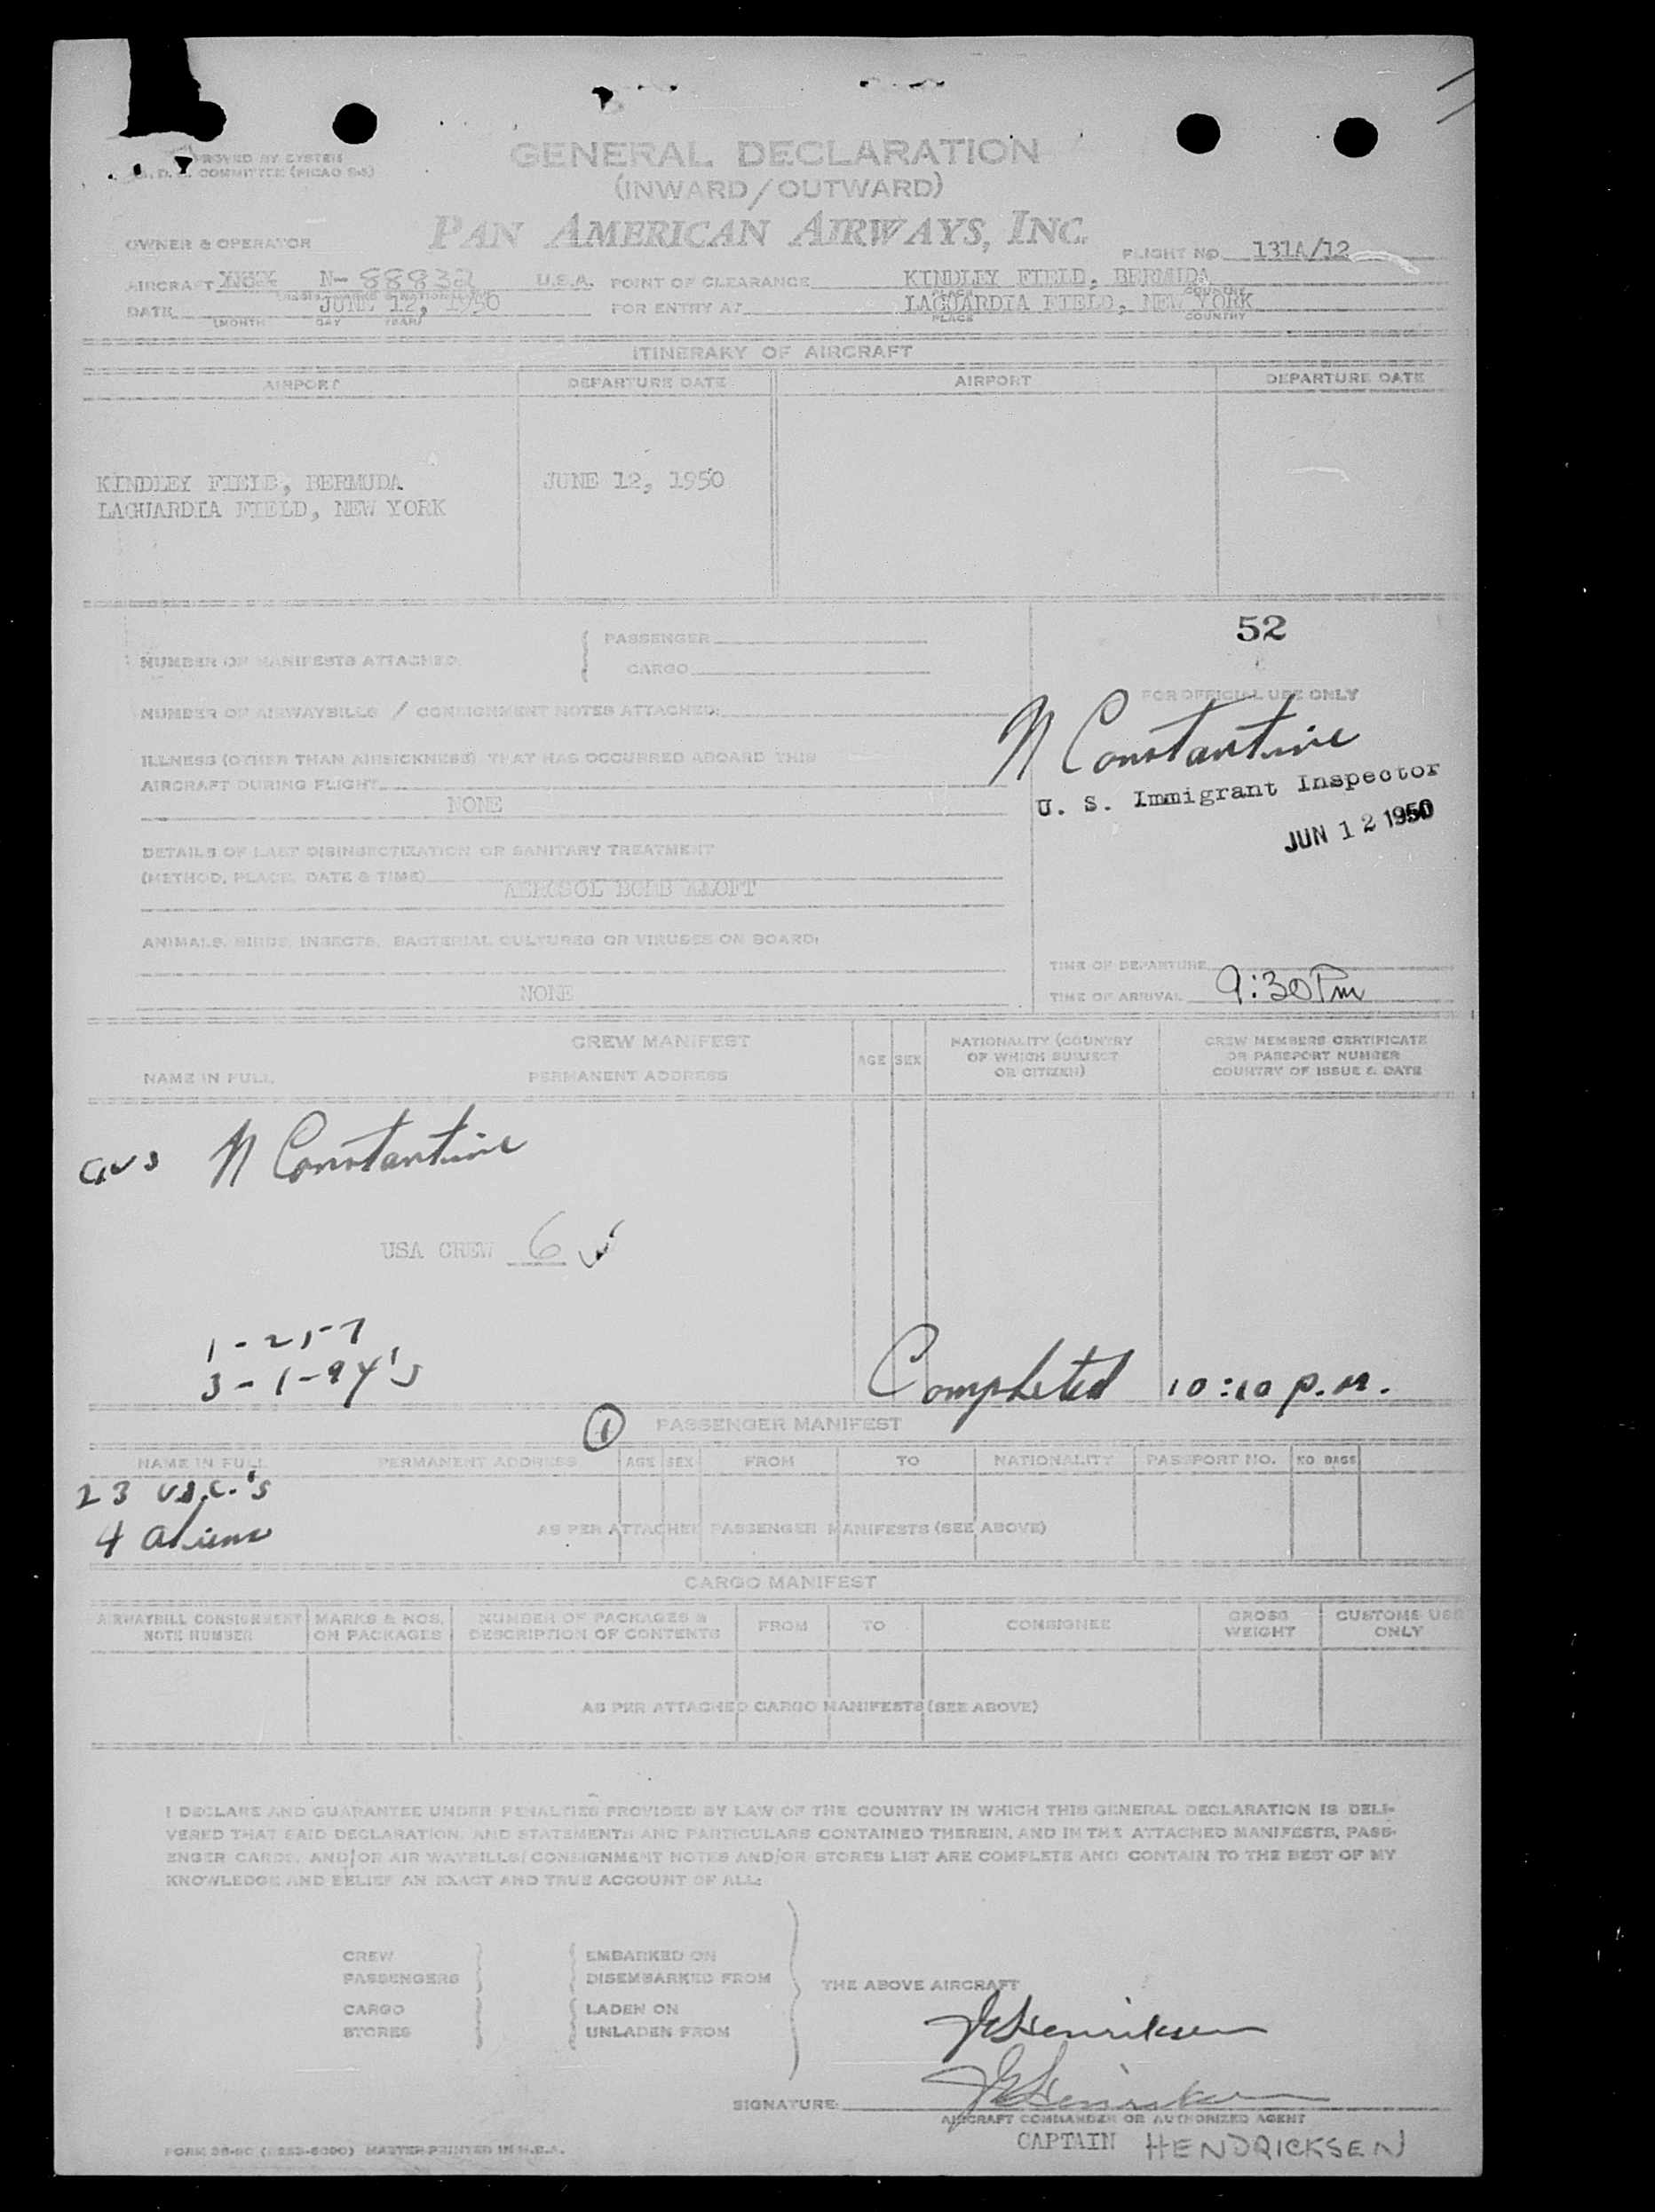 GENERAL DECLARATION
(INWARD/OUTWARD)
PAN AMERICAN AIRWAYS, INC.
COMMITTEE (PICAO 9-5)
OWNER & OPERATOR
FLIGHT NO. 131A/12
AIRCRAFT N-88832 U.S.A. POINT OF CLEARANCE KINDLEY FIELD, BERMUDA
PLACE COUNTRY
DATE JUNE 12, 1950 FOR ENTRY AT LAGUARDIA FIELD, NEW YORK
(MONTH DAY YEAR) PLACE COUNTRY
ITINERARY OF AIRCRAFT
AIRPORT DEPARTURE DATE AIRPORT DEPARTURE DATE
KINDLEY FIELD, BERMUDA JUNE 12, 1950
LAGUARDIA FIELD, NEW YORK
52
NUMBER OF MANIFESTS ATTACHED: PASSENGER
CARGO
FOR OFFICIAL USE ONLY
NUMBER OF AIRWAYBILLS / CONSIGNMENT NOTES ATTACHED:
N Constantine
U. S. Immigrant Inspector
JUN 12 1950
ILLNESS (OTHER THAN AIRSICKNESS) THAT HAS OCCURRED ABOARD THIS
AIRCRAFT DURING FLIGHT
NONE
DETAILS OF LAST DISINSECTIZATION OR SANITARY TREATMENT
(METHOD, PLACE, DATE & TIME)
AEROSOL BOMB ALOFT
ANIMALS, BIRDS, INSECTS, BACTERIAL CULTURES OR VIRUSES ON BOARD:
NONE
TIME OF DEPARTURE
TIME OF ARRIVAL 9:30 Pm
CREW MANIFEST
NAME IN FULL PERMANENT ADDRESS AGE SEX NATIONALITY (COUNTRY OF WHICH SUBJECT OR CITIZEN) CREW MEMBERS CERTIFICATE OR PASSPORT NUMBER COUNTRY OF ISSUE & DATE
N Constantine
USA CREW 6
3-1-94's
Completed 10:10 p.m.
1 PASSENGER MANIFEST
NAME IN FULL PERMANENT ADDRESS AGE SEX FROM TO NATIONALITY PASSPORT NO. NO. BAGS
23 U.S.C.'s
4 aliens
AS PER ATTACHED PASSENGER MANIFESTS (SEE ABOVE)
CARGO MANIFEST
AIRWAYBILL CONSIGNMENT NOTE NUMBER MARKS & NOS. ON PACKAGES NUMBER OF PACKAGES & DESCRIPTION OF CONTENTS FROM TO CONSIGNEE GROSS WEIGHT CUSTOMS USE ONLY
AS PER ATTACHED CARGO MANIFESTS (SEE ABOVE)
I DECLARE AND GUARANTEE UNDER PENALTIES PROVIDED BY LAW OF THE COUNTRY IN WHICH THIS GENERAL DECLARATION IS DELI-
VERED THAT SAID DECLARATION, AND STATEMENTS AND PARTICULARS CONTAINED THEREIN, AND IN THE ATTACHED MANIFESTS, PASS-
ENGER CARDS, AND/OR AIR WAYBILLS/CONSIGNMENT NOTES AND/OR STORES LIST ARE COMPLETE AND CONTAIN TO THE BEST OF MY
KNOWLEDGE AND BELIEF AN EXACT AND TRUE ACCOUNT OF ALL:
CREW EMBARKED ON
PASSENGERS DISEMBARKED FROM
THE ABOVE AIRCRAFT
CARGO LADEN ON
STORES UNLADEN FROM
JE Henriksen
SIGNATURE: JE Henriksen
AIRCRAFT COMMANDER OR AUTHORIZED AGENT
CAPTAIN HENDRICKSEN